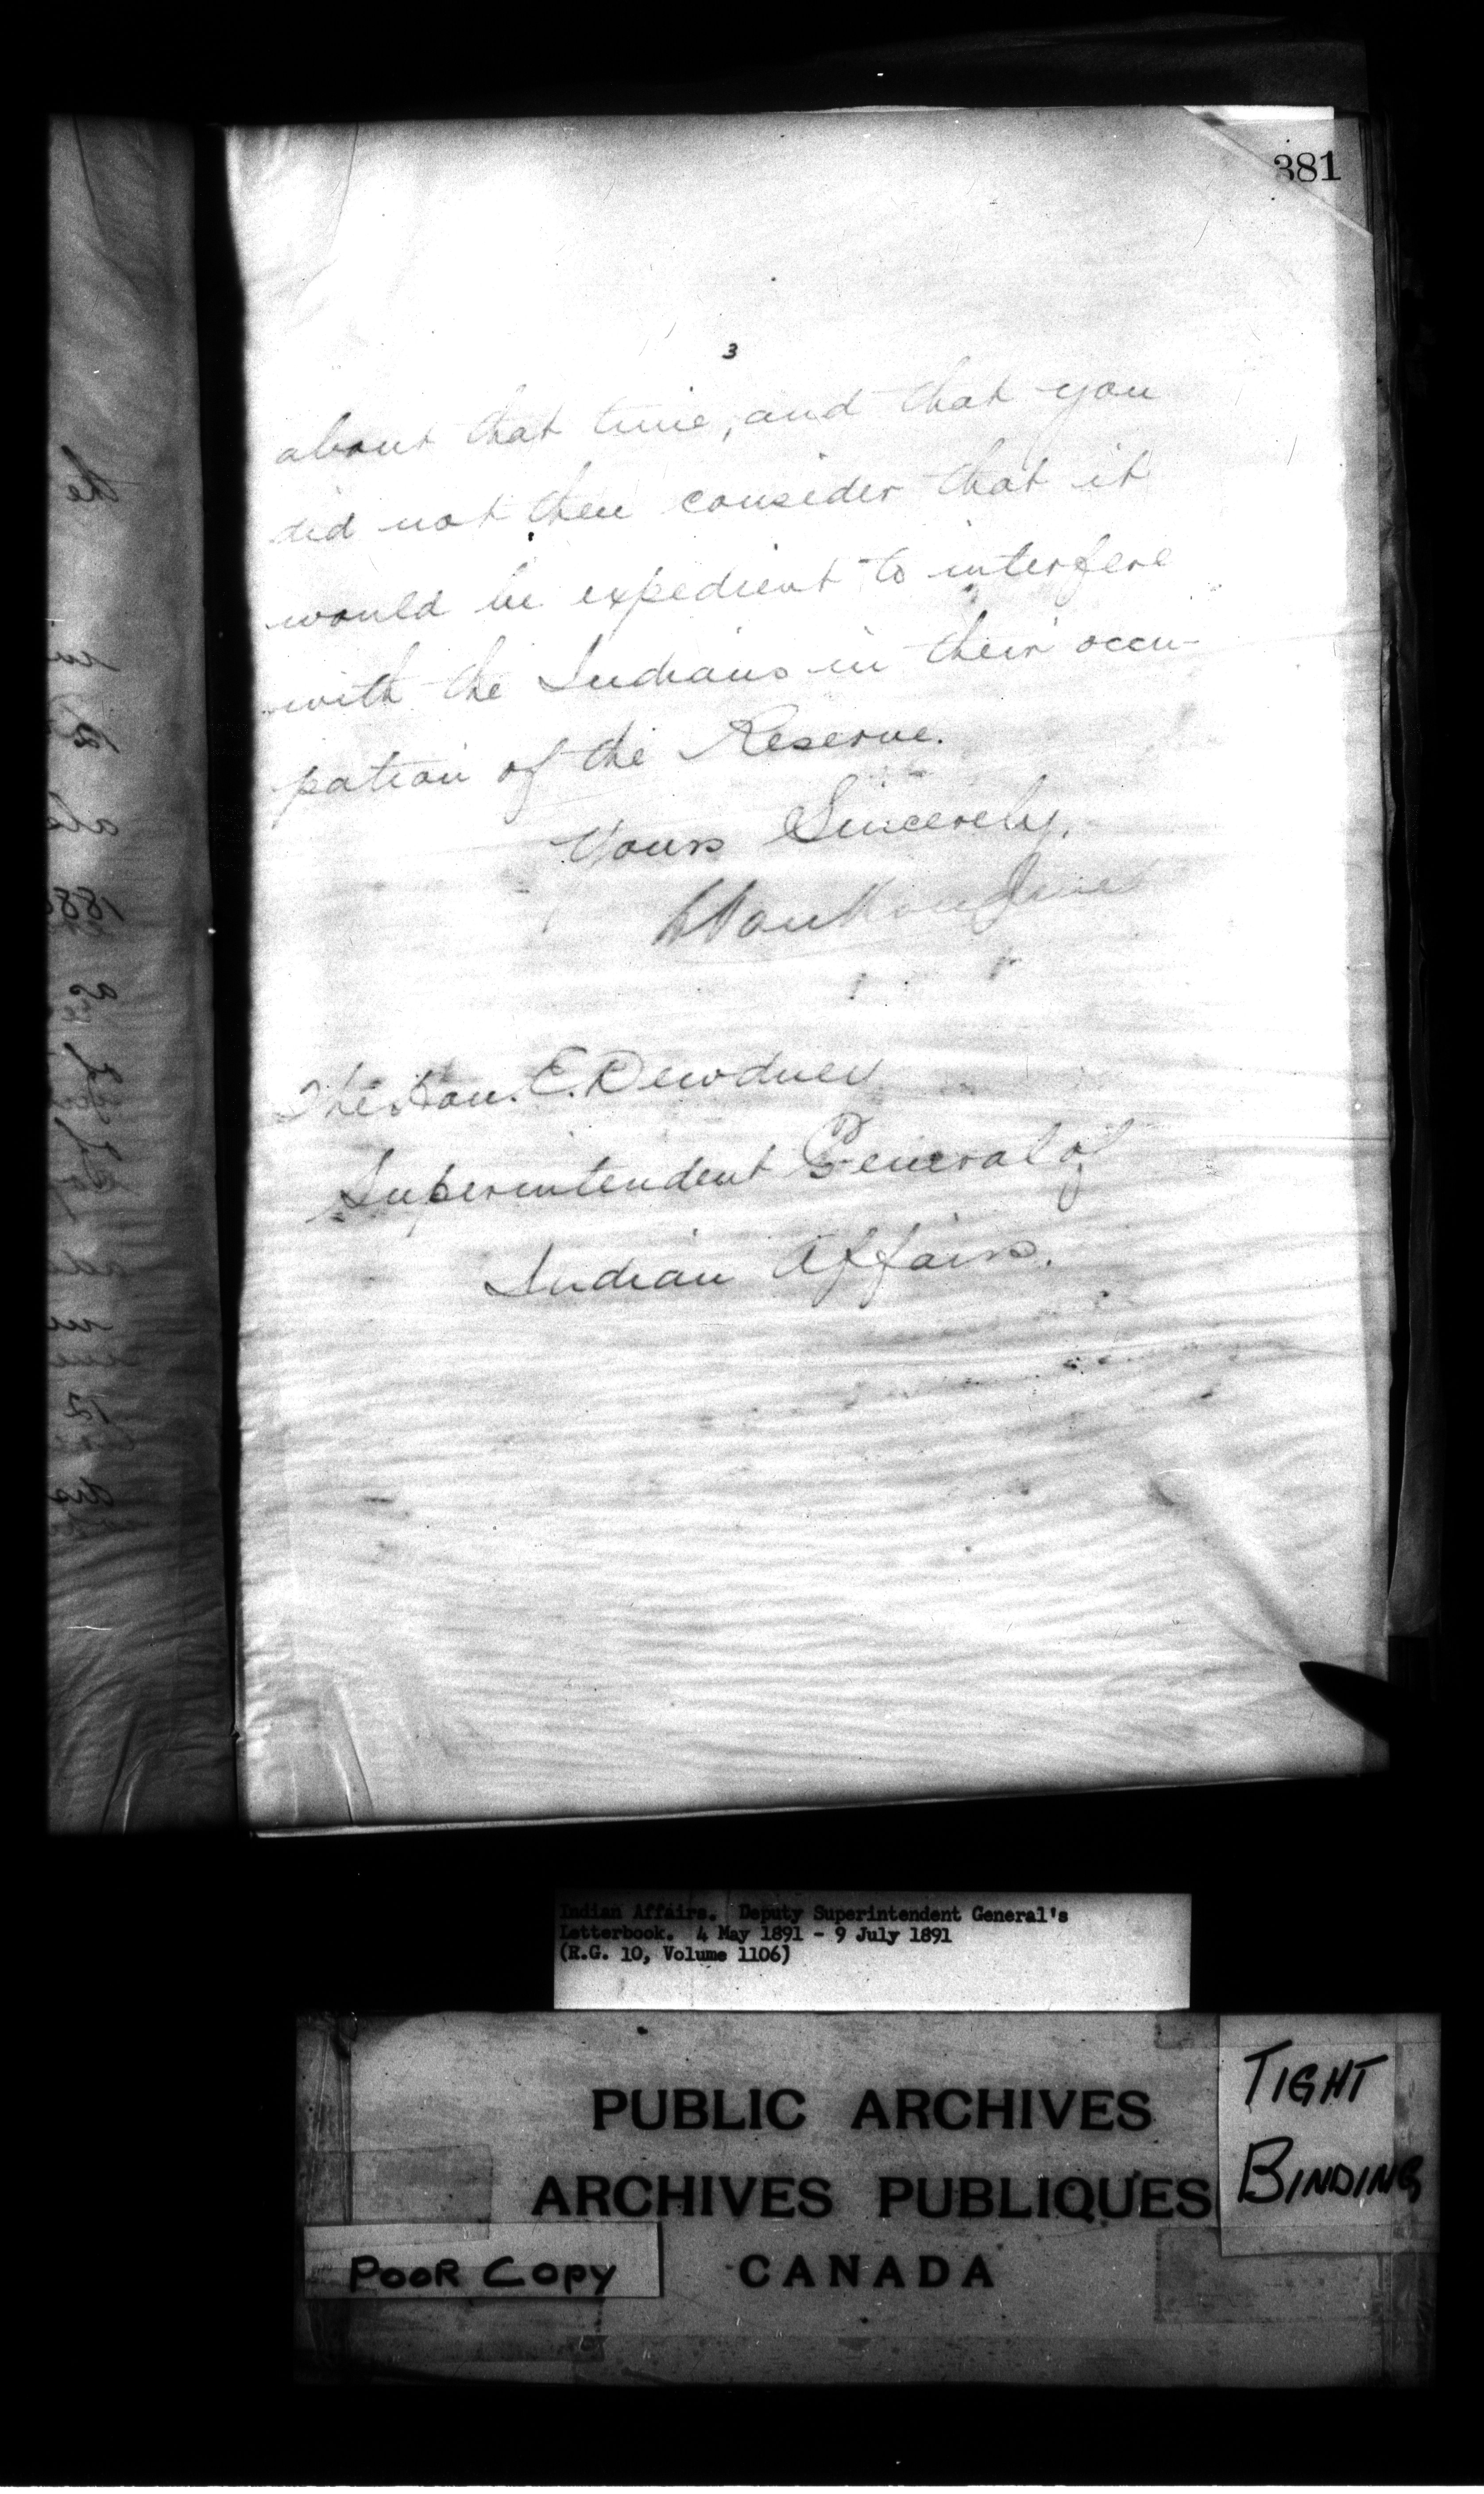 381
3
about that time, and that you
did not then consider that it
would be expedient to interfere
with the Indians in their occu-
pation of the Reserve.
Yours Sincerely,
The Hon. E. Dewdney
Superintendent General of
Indian Affairs.
Indian Affairs. Deputy Superintendent General's
Letterbook. 4 May 1891 - 9 July 1891
(R.G. 10, Volume 1106)
PUBLIC ARCHIVES
ARCHIVES PUBLIQUES
CANADA
TIGHT
BINDING
POOR COPY